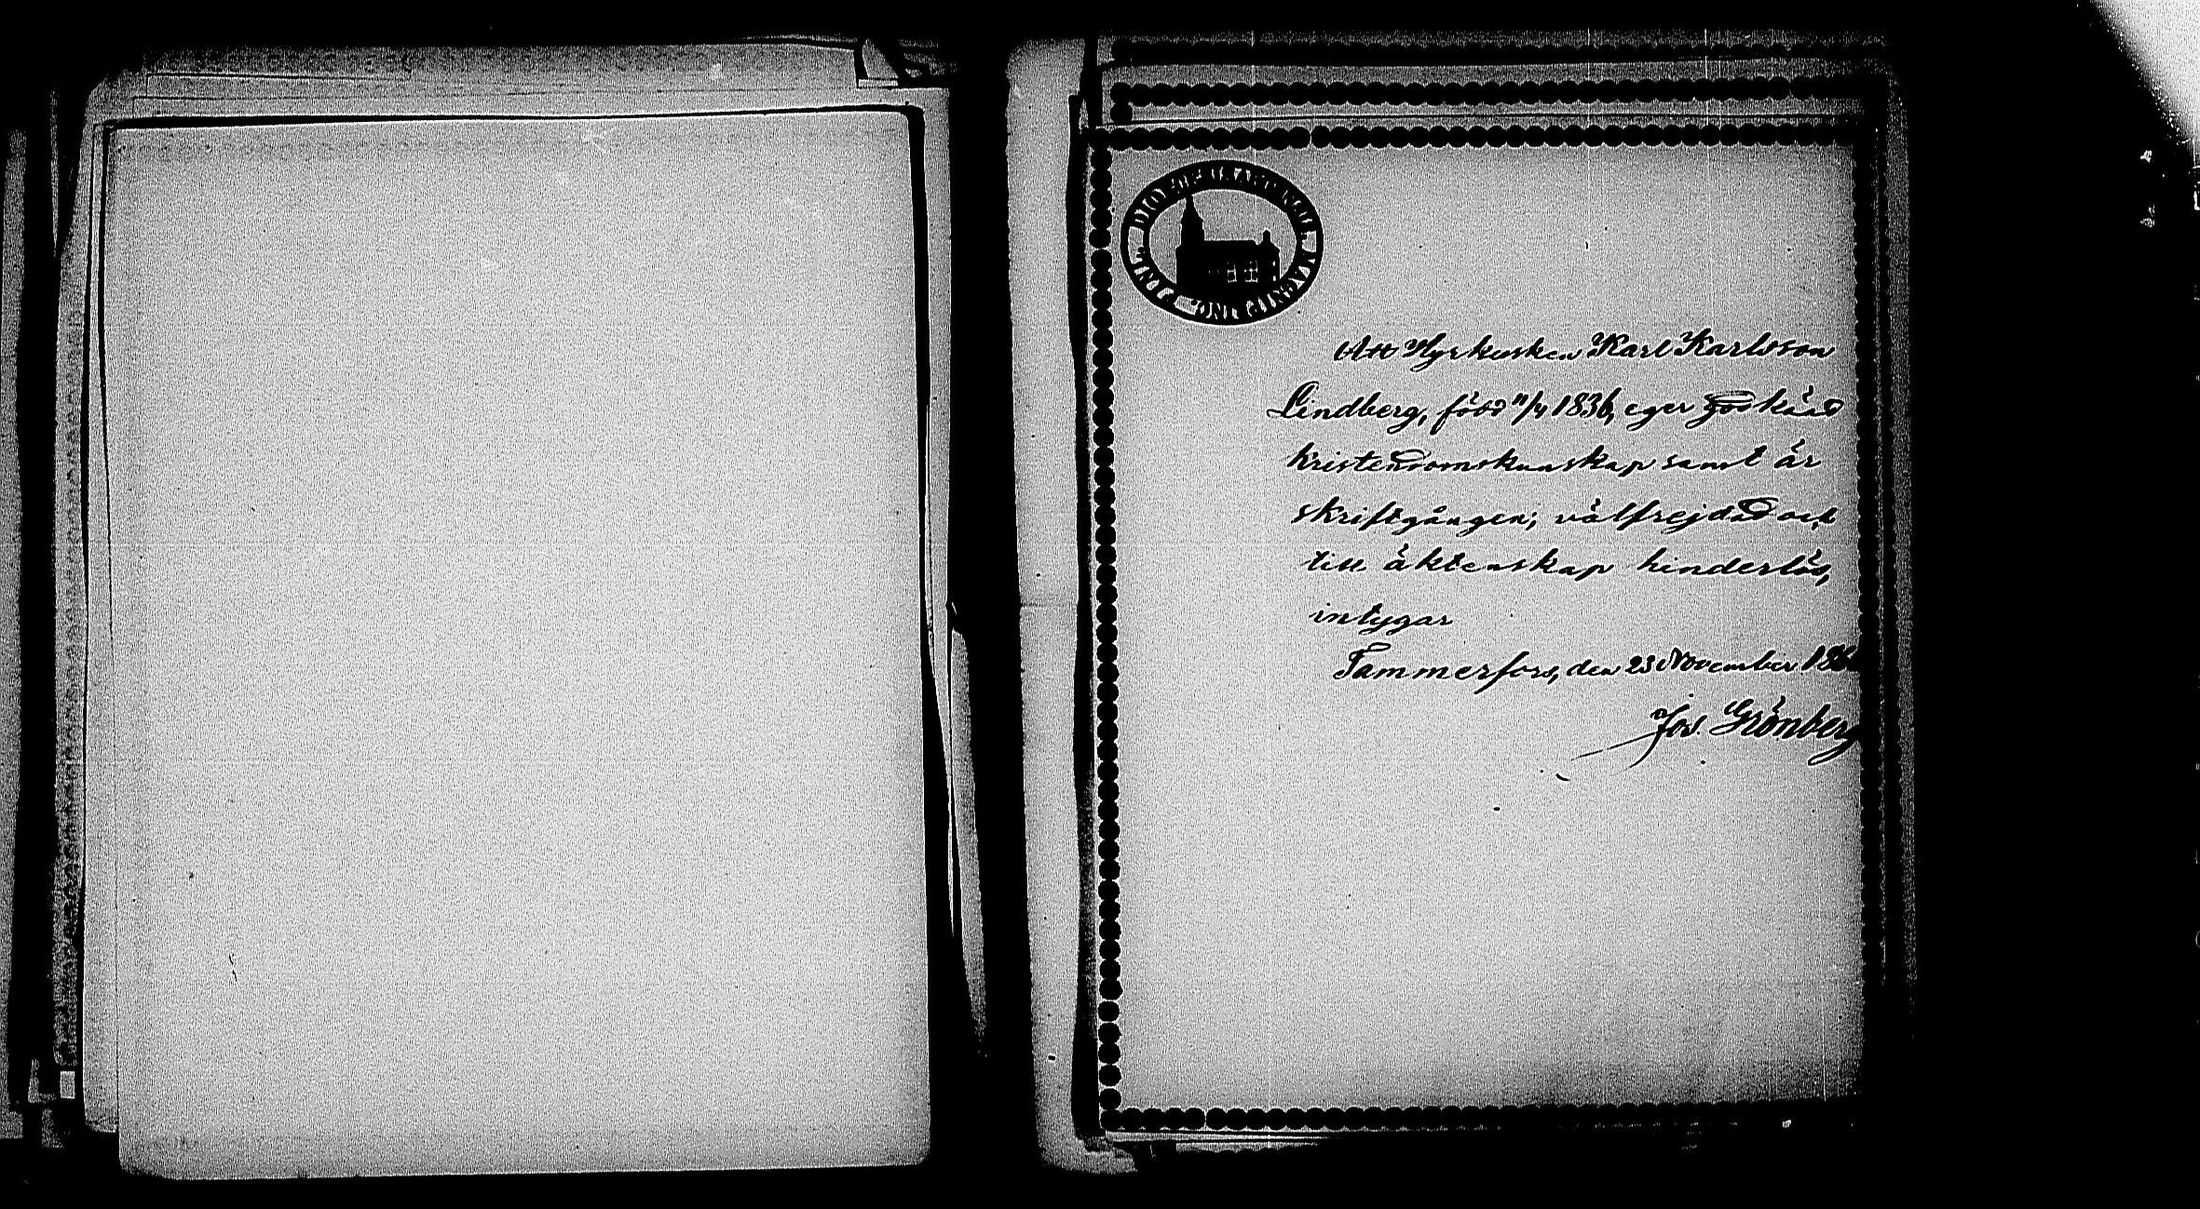 Att Hyrkusken Karl Karlsson
Lindberg, född 11/4 1836, eger godkänd
kristendomskunskap samt är
skriftgången; välfrejdad och
till äktenskap hinderlös,
intygar
Tammerfors, den 23 November
Jos. Grönberg